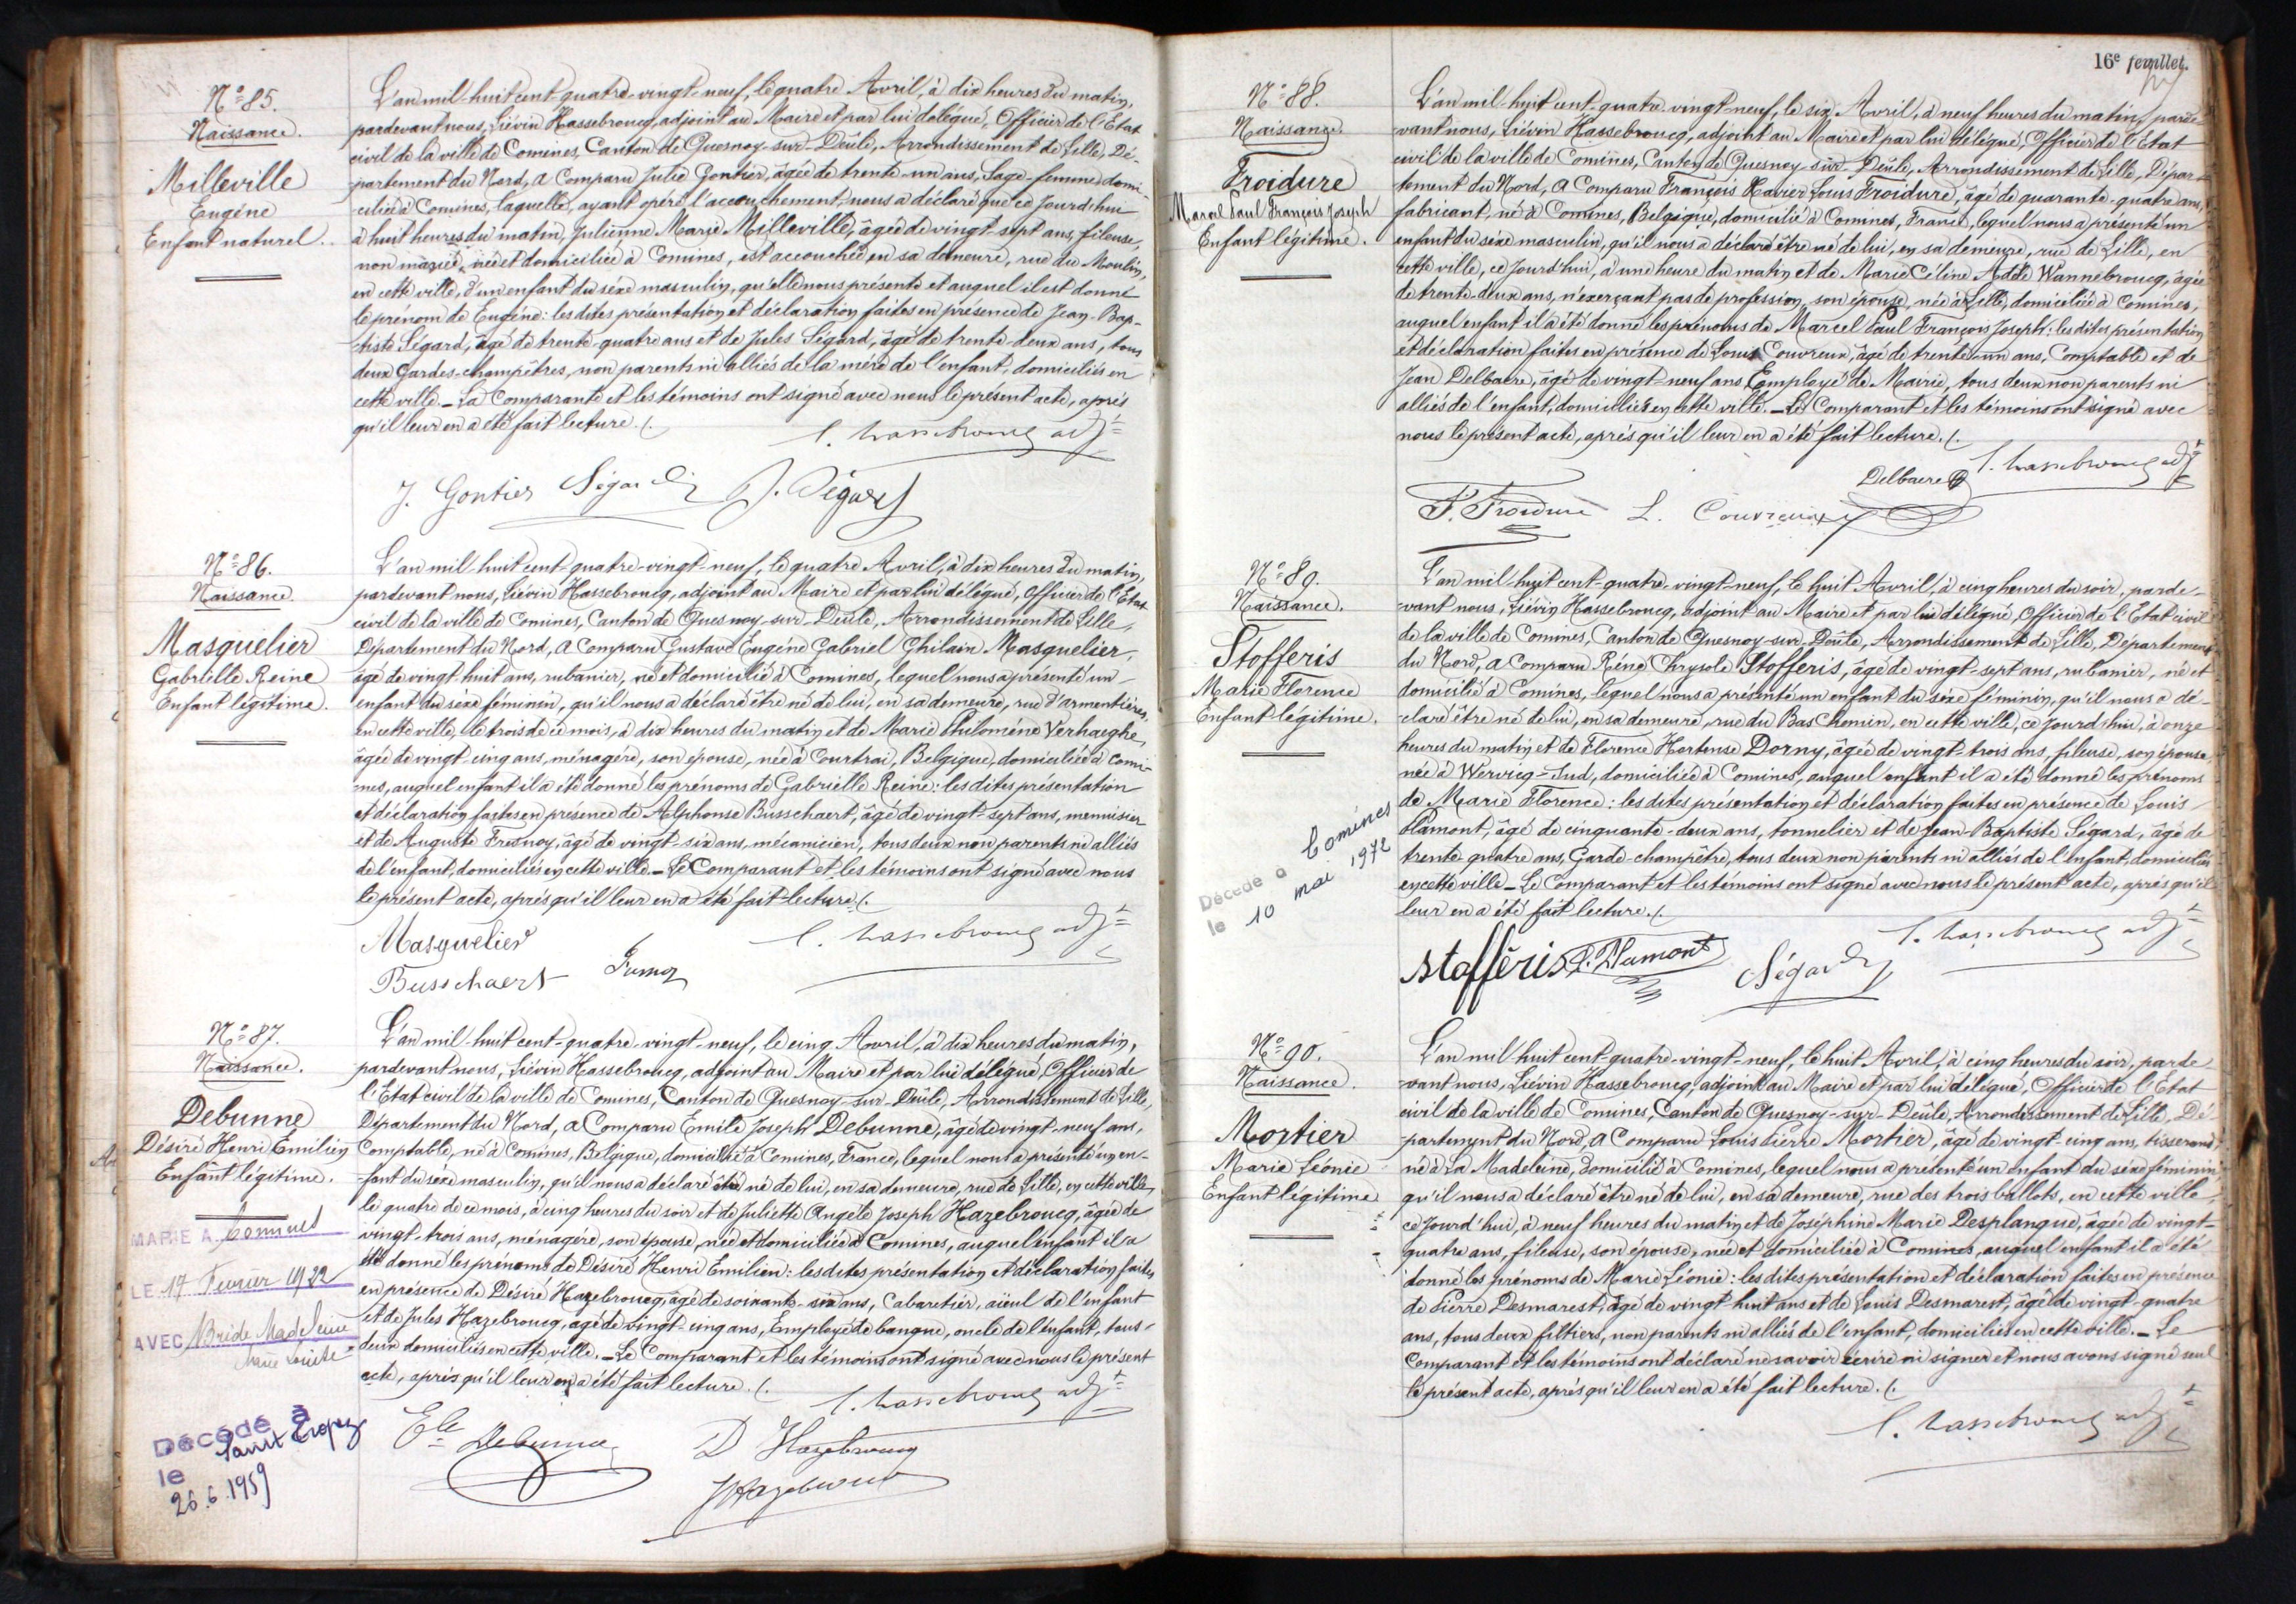 N° 85.
Naissance.
Milleville
Eugène
Enfant naturel.
L'an mil-huit cent-quatre-vingt-neuf, le quatre Avril, à dix heures du matin,
pardevant nous, Liévin Hassebroucq, adjoint au Maire et par lui délégué, Officier de l'Etat
civil de la ville de Comines, Canton de Quesnoy-sur-Deûle, Arrondissement de Lille, Dé-
partement du Nord, a Comparu Julie Gontier, âgée de trente-un ans, Sage-femme domi-
ciliée à Comines, laquelle, ayant opéré l'accouchement, nous a déclaré que ce Jourd'hui
à huit heures du matin, Julienne Marie Milleville, âgée de vingt-sept ans, fileuse,
non mariée, née et domiciliée à Comines, est accouchée en sa demeure, rue du Moulin,
en cette ville, d'un enfant du sexe masculin, qu'elle nous présente et auquel il est donné
le prénom de Eugène: les dites présentation et déclaration faites en présence de Jean-Bap-
tiste Ségard, âgé de trente-quatre ans et de Jules Ségard, âgé de trente-deux ans, tous
deux Gardes-champêtres, non parents ni alliés de la mère de l'enfant, domiciliés en
cette ville._ La Comparante et les témoins ont signé avec nous le présent acte, après
qu'il leur en a été fait lecture./.
L. Hassebroucq adjt
J. Gontier Ségard J. Ségard
N° 86.
Naissance.
Masquelier
Gabrielle Reine
Enfant légitime.
L'an mil-huit cent-quatre-vingt-neuf, le quatre Avril, à dix heures du matin,
pardevant nous, Liévin Hassebroucq, adjoint au Maire et par lui délégué, Officier de l'Etat
civil de la ville de Comines, Canton de Quesnoy-sur-Deûle, Arrondissement de Lille,
Département du Nord, a Comparu Gustave Eugène Gabriel Ghilain Masquelier,
âgé de vingt-huit ans, rubanier, né et domicilié à Comines, lequel nous a présenté un
enfant du sexe féminin, qu'il nous a déclaré être né de lui, en sa demeure, rue d'Armentières,
en cette ville, le trois de ce mois, à dix heures du matin et de Marie Philomène Verhaeghe,
âgée de vingt-cinq ans, ménagère, son épouse, née à Courtrai, Belgique, domiciliée à Comi-
nes, auquel enfant il a été donné les prénoms de Gabrielle Reine: les dites présentation
et déclaration faites en présence de Alphonse Busschaert, âgé de vingt-sept ans, menuisier
et de Auguste Fresnoy, âgé de vingt-six ans, mécanicien, tous deux non parents ni alliés
de l'enfant, domiciliés en cette ville._ Le Comparant et les témoins ont signé avec nous
le présent acte, après qu'il leur en a été fait lecture./.
Masquelier L. Hassebroucq adjt
Busschaert
N° 87.
Naissance.
Debunne
Désiré Henri Emilien
Enfant légitime.
MARIÉ A Comines
LE 17 Février 1922
AVEC Bride Madeleine
Marie Louise
Décédé à
Saint Tropez
le
26.6.1959
L'an mil-huit cent-quatre-vingt-neuf, le cinq Avril, à dix heures du matin,
pardevant nous, Liévin Hassebroucq, adjoint au Maire et par lui délégué, Officier de
l'Etat civil de la ville de Comines, Canton de Quesnoy-sur-Deûle, Arrondissement de Lille,
Département du Nord, a Comparu Emile Joseph Debunne, âgé de vingt-neuf ans,
Comptable, né à Comines, Belgique, domicilié à Comines, France, lequel nous a présenté un en-
fant du sexe masculin, qu'il nous a déclaré être né de lui, en sa demeure, rue de Lille, en cette ville,
le quatre de ce mois, à cinq heures du soir et de Juliette Angèle Joseph Hazebroucq, âgée de
vingt-trois ans, ménagère, son épouse, née et domiciliée à Comines, auquel enfant il a
été donné les prénoms de Désiré Henri Emilien: les dites présentation et déclaration faites
en présence de Désiré Hazebroucq, âgé de soixante-six ans, Cabaretier, aïeul de l'enfant
et de Jules Hazebroucq, âgé de vingt-cinq ans, Employé de banque, oncle de l'enfant, tous-
deux domiciliés en cette ville._ Le Comparant et les témoins ont signé avec nous le présent
acte, après qu'il leur en a été fait lecture./.
L. Hassebroucq adjt
Ele Debunne D Hazebroucq
J Hazebroucq
16e feuillet.
N° 88.
Naissance
Froidure
Marcel Paul François Joseph
Enfant légitime.
L'an mil-huit cent-quatre-vingt-neuf, le six Avril, à neuf heures du matin, parde
vant nous, Liévin Hassebroucq, adjoint au Maire et par lui délégué, Officier de l'Etat
civil de la ville de Comines, Canton de Quesnoy-sur-Deûle, Arrondissement de Lille, Dépar-
tement du Nord, a Comparu François Xavier Louis Froidure, âgé de quarante-quatre ans,
fabricant, né à Comines, Belgique, domicilié à Comines, France, lequel nous a présenté un
enfant du sexe masculin, qu'il nous a déclaré être né de lui, en sa demeure, rue de Lille, en
cette ville, ce Jourd'hui, à une heure du matin et de Marie Céline Adèle Wannebroucq, âgée
de trente-deux ans, n'exerçant pas de profession, son épouse, née à Lille, domiciliée à Comines,
auquel enfant il a été donné les prénoms de Marcel Paul François Joseph: les dites présentation
et déclaration faites en présence de Louis Couvreux, âgé de trente-un ans, Comptable et de
Jean Delbaere, âgé de vingt-neuf ans, Employé de Mairie, tous deux non parents ni
alliés de l'enfant, domiciliés en cette ville._ Le Comparant et les témoins ont signé avec
nous le présent acte, après qu'il leur en a été fait lecture./.
Delbaere L. Hassebroucq adjt
F. Froidure L. Couvreux
N° 89.
Naissance.
Stofferis
Marie Florence
Enfant légitime.
Décédé à Comines
le 10 mai 1972
L'an mil-huit cent-quatre-vingt-neuf, le huit Avril, à cinq heures du soir, parde-
vant nous, Liévin Hassebroucq, adjoint au Maire et par lui délégué, Officier de l'Etat civil
de la ville de Comines, Canton de Quesnoy-sur-Deûle, Arrondissement de Lille, Département
du Nord, a Comparu Réné Chrysole Stofferis, âgé de vingt-sept ans, rubanier, né et
domicilié à Comines, lequel nous a présenté un enfant du sexe féminin, qu'il nous a dé-
claré être né de lui, en sa demeure, rue du Bas Chemin, en cette ville, ce Jourd'hui, à onze
heures du matin et de Florence Hortense Dorny, âgée de vingt-trois ans, fileuse, son épouse,
née à Wervicq-Sud, domiciliée à Comines, auquel enfant il a été donné les prénoms
de Marie Florence: les dites présentation et déclaration faites en présence de Louis
Hamont, âgé de cinquante-deux ans, tonnelier et de Jean-Baptiste Ségard, âgé de
trente-quatre ans, Garde-champêtre, tous deux non parents ni alliés de l'enfant, domiciliés
en cette ville._ Le Comparant et les témoins ont signé avec nous le présent acte, après qu'il
leur en a été fait lecture./.
L. Hassebroucq adjt
stofféris Ségard
N° 90.
Naissance.
Mortier
Marie Léonie
Enfant légitime
L'an mil-huit cent-quatre-vingt-neuf, le huit Avril, à cinq heures du soir, parde-
vant nous, Liévin Hassebroucq, adjoint au Maire et par lui délégué, Officier de l'Etat
civil de la ville de Comines, Canton de Quesnoy-sur-Deûle, Arrondissement de Lille, Dé
partement du Nord, a Comparu Louis Pierre Mortier, âgé de vingt-cinq ans, tisserand,
né à La Madeleine, domicilié à Comines, lequel nous a présenté un enfant du sexe féminin,
qu'il nous a déclaré être né de lui, en sa demeure, rue des trois ballots, en cette ville,
ce Jourd'hui, à neuf heures du matin et de Joséphine Marie Desplanque, âgée de vingt-
quatre ans, fileuse, son épouse, née et domiciliée à Comines, auquel enfant il a été
donné les prénoms de Marie Léonie: les dites présentation et déclaration faites en présence
de Pierre Desmarest, âgé de vingt-huit ans et de Louis Desmarest, âgé de vingt-quatre
ans, tous deux filtiers, non parents ni alliés de l'enfant, domiciliés en cette ville._ Le
Comparant et les témoins ont déclaré ne savoir écrire ni signer et nous avons signé seul
le présent acte, après qu'il leur en a été fait lecture./.
L. Hassebroucq adjt